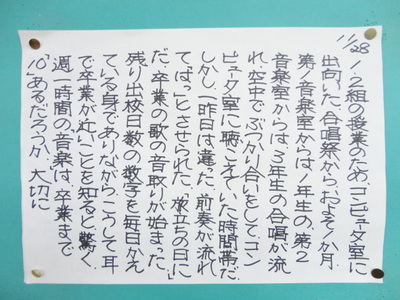 11/28
1・2組の授業のため、コンピュータ室に
出向いた。合唱祭から、およそ1か月。
第1音楽室からは1年生の、第2
音楽室からは、3年生の合唱が流
れ、空中でぶつかり合いをして、コン
ピュータ室に聴こえていた時間帯だ。
しかし、一昨日は違った。前奏が流れ
て「はっ」とさせられた。「旅立ちの日に」
だ。卒業の歌の音取りが始まった。
残り出校日数の数字を毎日かえ
ている身でありながら、こうして耳
で卒業が近いことを知ると驚く。
週一時間の音楽は、卒業まで
「10」あるだろうか。大切に